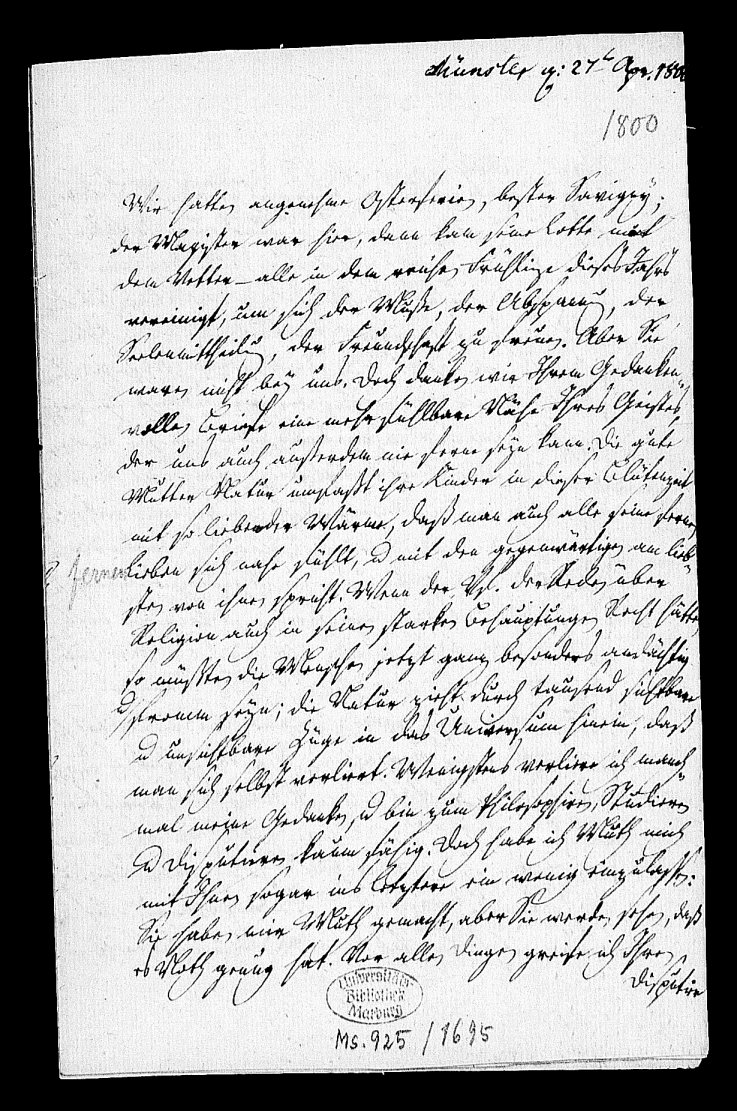 Münster d: 27t Apr. 180
1800
Wir hatten angenehme Osterferien, bester Savigny;
der Magister war hier, dann kam seine Lotte mit
dem Vetter – alle in dem Frühlinge dieses Jahrs
vereinigt, um sich der Muße, der Abspannung, der
Seelenmittheilung, der Freundschaft zu freuen. Aber Sie
waren nicht bey uns. Doch danken wir Ihrem Gedanken-
vollen Briefe eine mehr fühlbare Nähe Ihres Geistes,
der uns auch außerdem nie ferne seyn kann. Die gute
Mutter Natur umfaßt ihre Kinder in dieser Blütenzeit
mit so liebender Wärme, daß man auch alle seine fernen
? fernen
Lieben sich nahe fühlt, u mit den gegenwärtigen am lieb-
sten von ihnen spricht. Wenn der Vf. der Reden über
Religion auch in seinen starken Behauptungen Recht hätte,
so müßten die Menschen jetzt ganz besonders andächtig
u fromm seyn; die Natur zieht durch tausend sichtbare
u unsichtbare Züge in das Universum hinein, daß
man sich selbst verliert. Wenigstens verliere ich manch-
mal meine Gedanken, u bin zum Philosophiren, Studieren
u Disputiren kaum fähig. Doch habe ich Muth mich
mit Ihnen sogar ins letztere ein wenig einzulassen:
Sie haben mir Muth gemacht, aber Sie werden sehen, daß
es Noth genug hat. Vor allen Dingen greife ich Ihren
Disputir
Universitäts
Bibliothek
Marburg
Ms. 925 / 1695